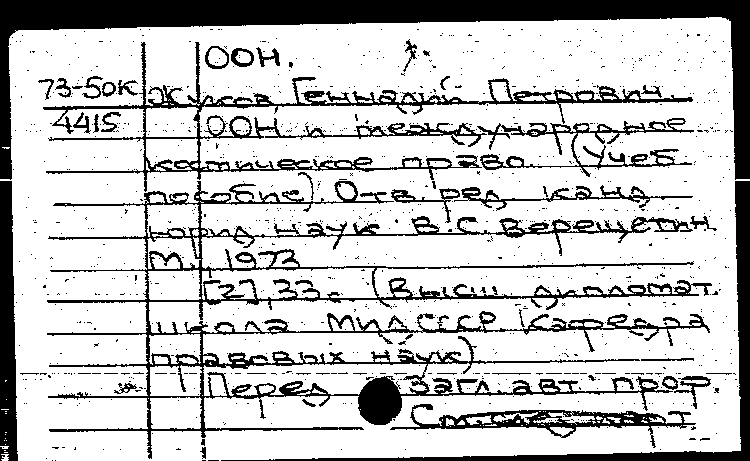 ООН.
73-50к Жуков, Геннадий Петрович.
4415 ООН и международное
космическое право. (Учеб.
пособие). Отв. ред. канд.
юрид. наук В.С. Верещетин.
М., 1973
[2], 33с. (Высш. дипломат.
школа МИД СССР. Кафедра
правовых наук)
Перед загл. авт.: проф.
См. след. карт.